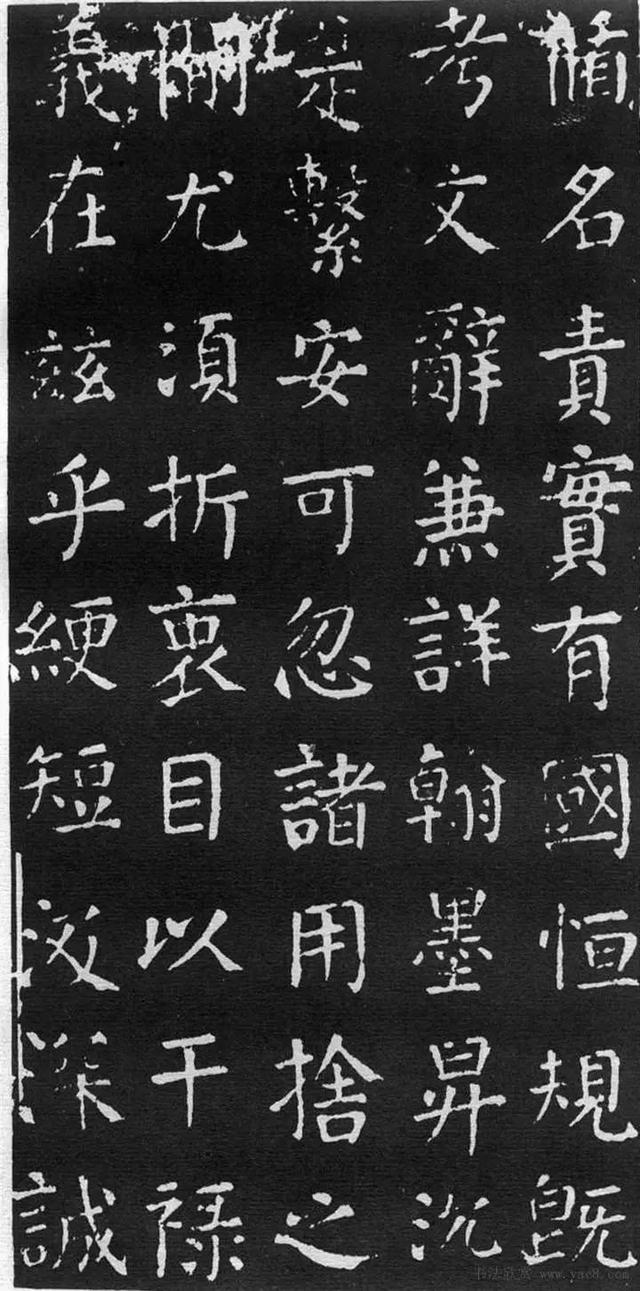 循名責實有國恒規既
考文辭兼詳翰墨昇沉
是繫安可忽諸用捨之
間尤須折衷目以干禄
義在兹乎綆短汲深誠
书法欣赏 www.yac8.com